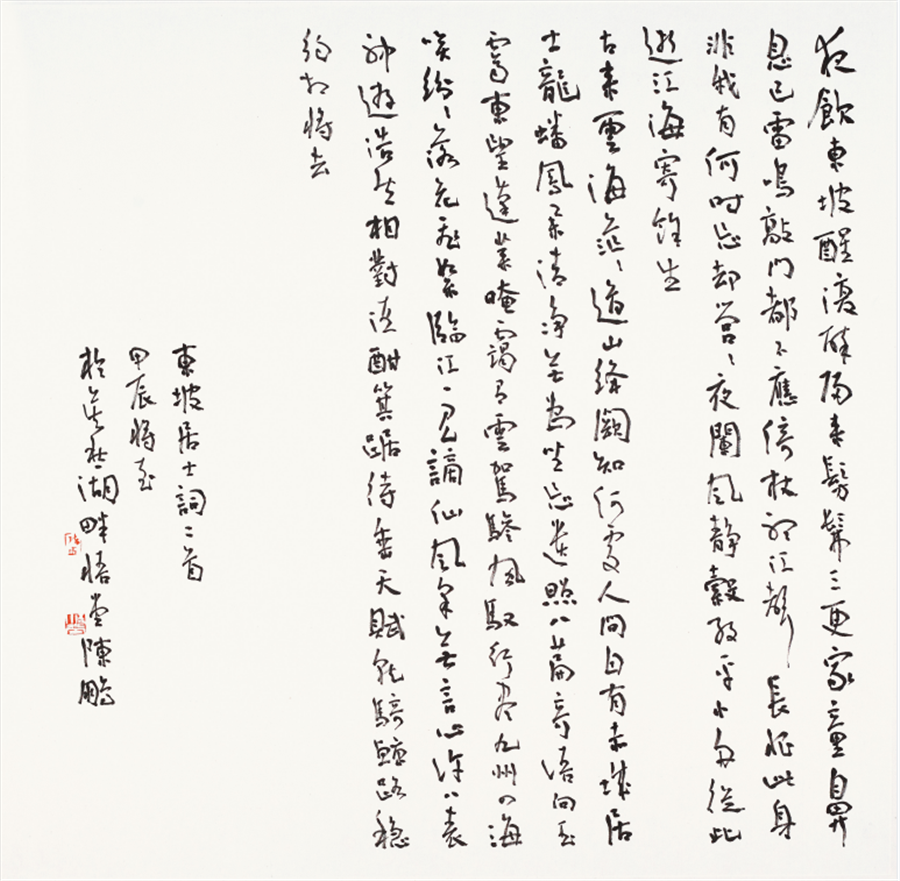 夜飲東坡醒復醉歸來髣髴三更家童鼻
息已雷鳴敲門都不應倚杖聽江聲 長恨此身
非我有何時忘却營〻夜闌風靜縠紋平小舟從此
逝江海寄餘生
古來雲海茫〻道山絳闕知何處人間自有赤城居
士龍蟠鳳舉清净無為坐忘遺照八篇奇語向玉
霄東望蓬萊晻靄有雲駕驂風馭行盡九州四海
笑紛〻落花飛絮臨江一見謫仙風采無言心許八表
神遊浩然相對酒酣箕踞待垂天賦就騎鯨路穩
約相將去
東坡居士詞二首
甲辰將至
於莫愁湖畔悟堂陳鵬